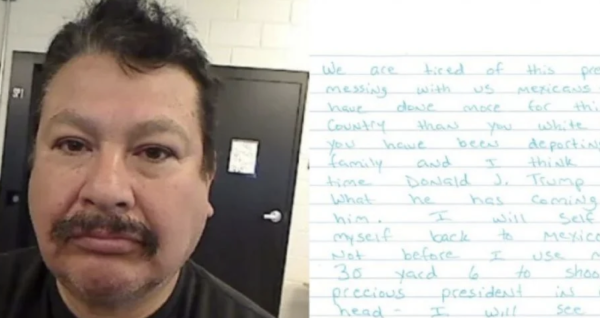 We are tired of this
messing with us mexicans
have done more for
country than you white
you have been
family and I think
time Donald J. Trump
what he has coming
him. I will
myself back to mexico
Not before I use
30 yard 6 to
precious president in
head - I will see